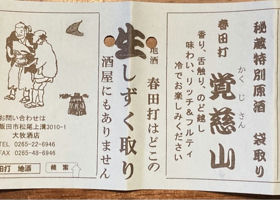 秘蔵特別原酒　袋取り
春田打
かくじさん
覚慈山
香り、舌触り、のど越し
味わい、リッチ&フルティ
冷でお楽しみください
地酒
春田打はどこの
酒屋にもありません
生しずく取り
お問い合わせは
飯田市松尾上溝3010-1
大牧酒店
TEL 0265-22-6946
FAX 0265-48-6946
春田打 地酒 検索